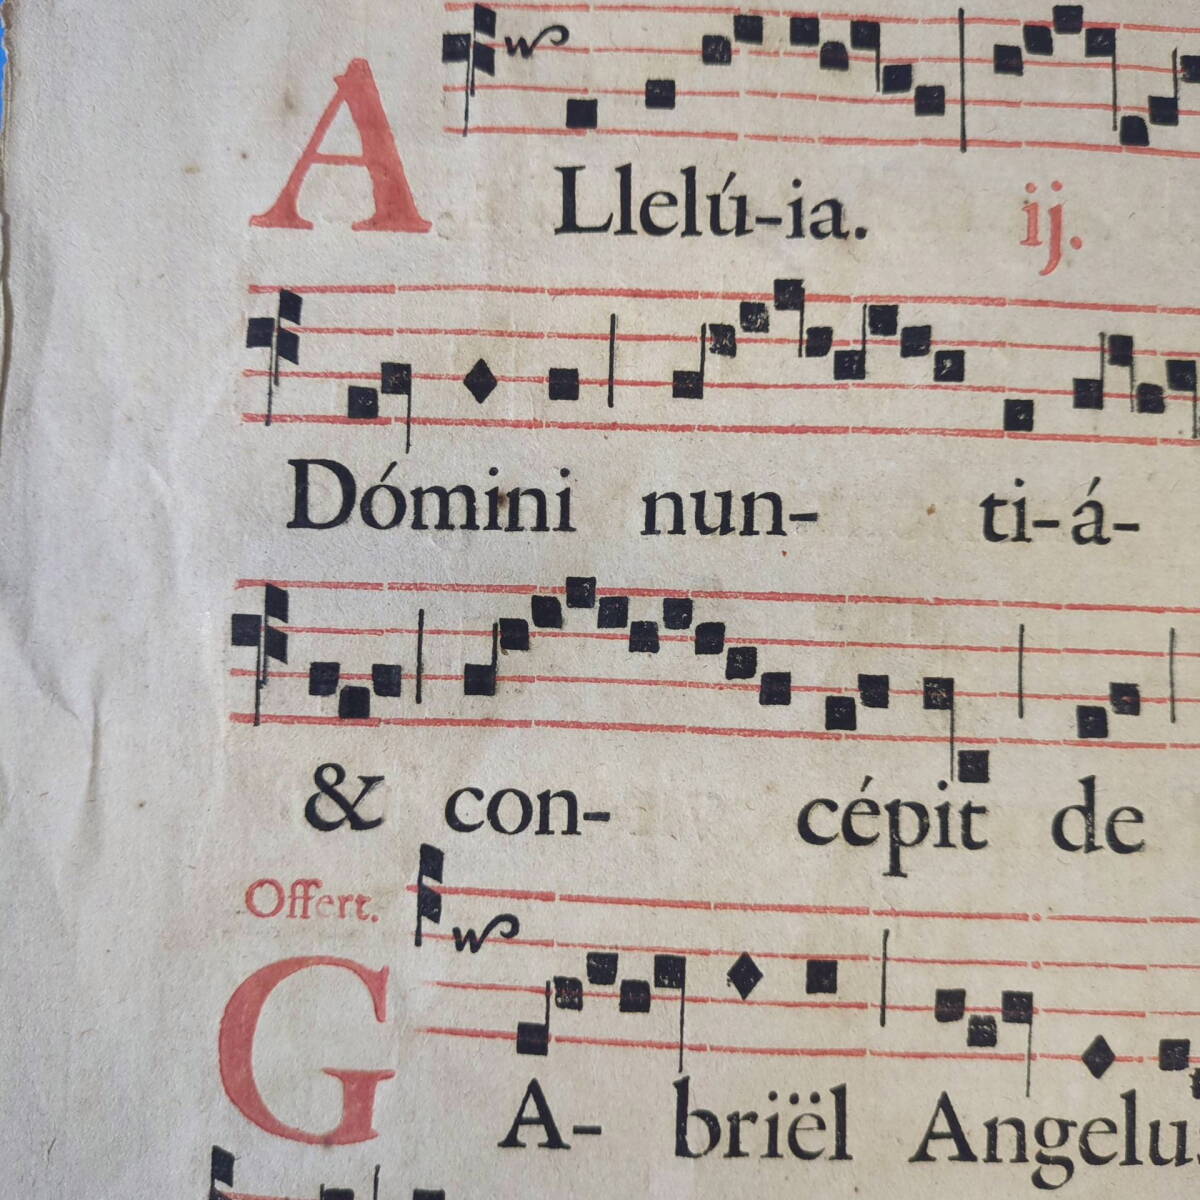 ALlelú-ia. ij.
Dómini nun- ti-á-
& con- cépit de
Offert.
GA- briël Angelus